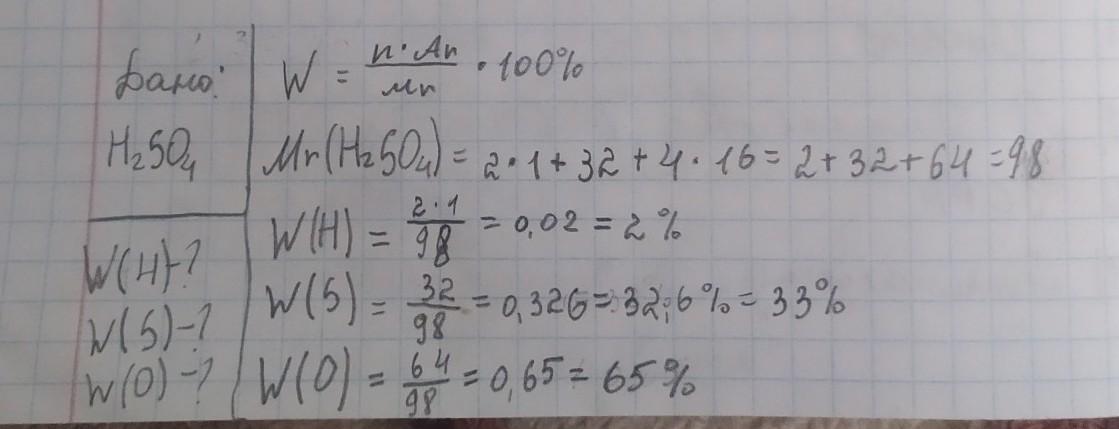 Дано:
H₂SO₄
W(H)-?
W(S)-?
W(O)-?
W = n·Ar/Mr · 100%
Mr(H₂SO₄) = 2·1+32+4·16 = 2+32+64 = 98
W(H) = 2·1/98 = 0,02 = 2%
W(S) = 32/98 = 0,326 = 32,6% = 33%
W(O) = 64/98 = 0,65 = 65%